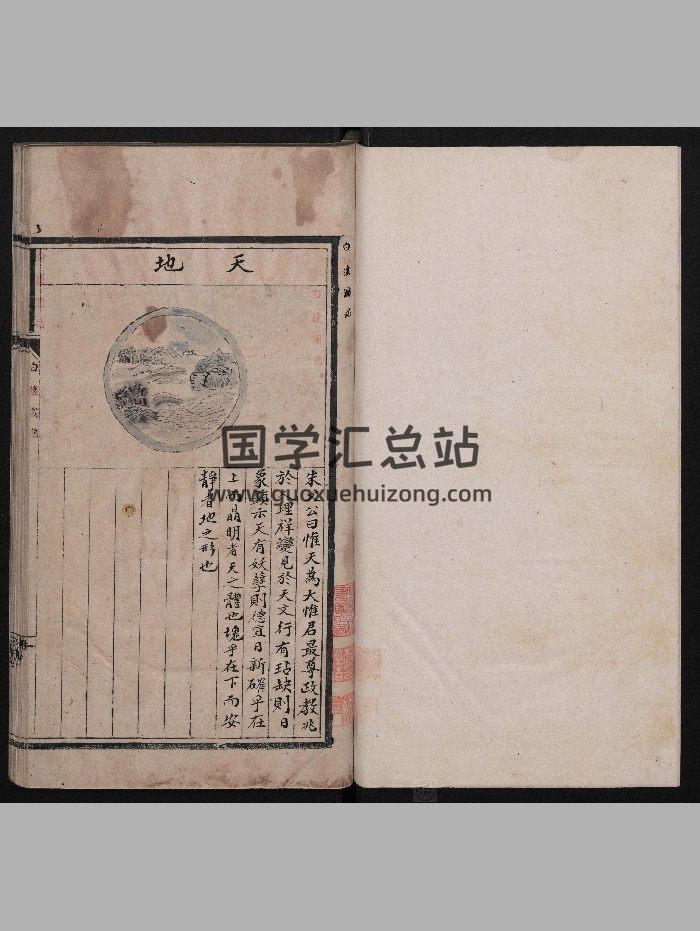 天地
朱文公曰惟天為大惟君最尊政教兆
於人理祥變見於天文行有玷缺則日
象顯示天有妖孽則德宜日新確乎在
上而晶明者天之體也塊乎在下而安
靜者地之形也
白猿圖説
白猿
国学汇总站
www.guoxuehuizong.com